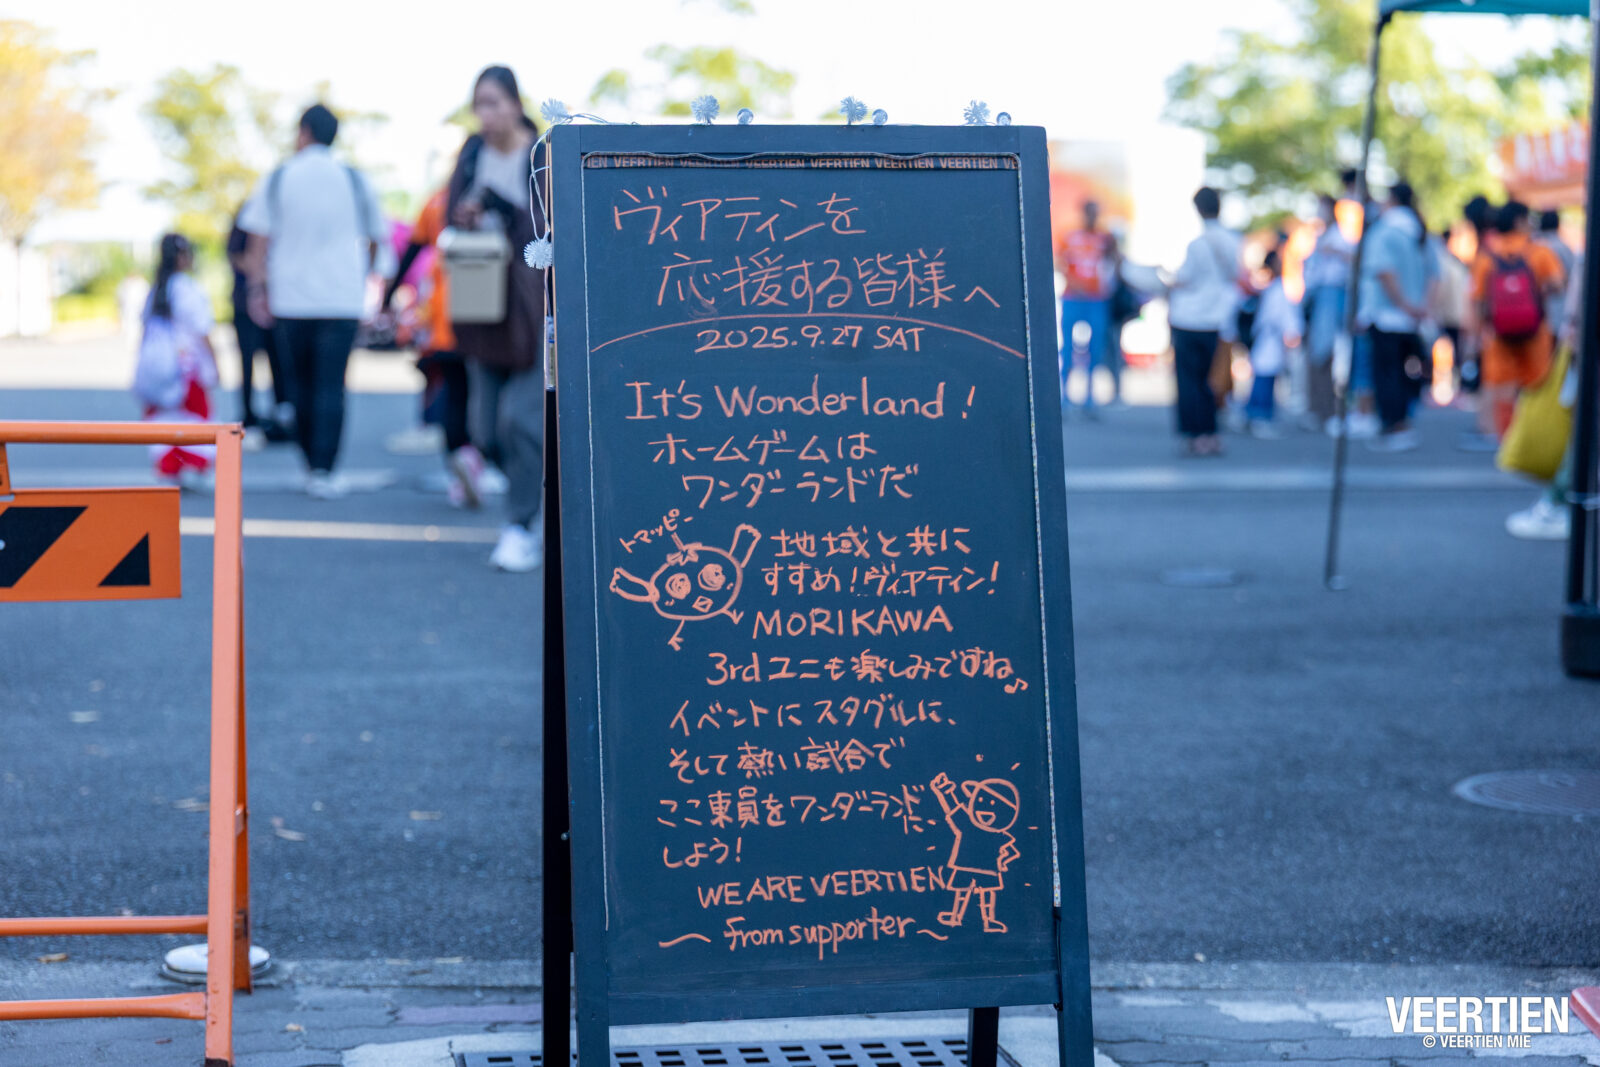 IEN VEERTIEN VEERTIEN VEERTIEN VEERTIEN VEERTIEN VEERTIEN VE
ヴィアティンを
応援する皆様へ
2025.9.27 SAT
It's Wonderland!
ホームゲームは
ワンダーランドだ
トマッピー
地域と共に
すすめ!ヴィアティン!
MORIKAWA
3rdユニも楽しみですね♪
イベントにスタグルに、
そして熱い試合で
ここ東員をワンダーランドに
しよう!
WE ARE VEERTIEN
〜from supporter〜
VEERTIEN
© VEERTIEN MIE